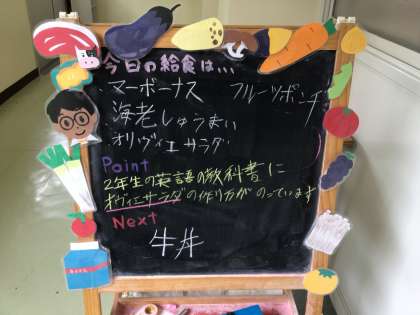 今日の給食は...
マーボーナス フルーツポンチ
海老しゅうまい
オリヴィエサラダ
Point
2年生の英語の教科書に
オヴィエサラダの作り方がのっています
Next
牛丼